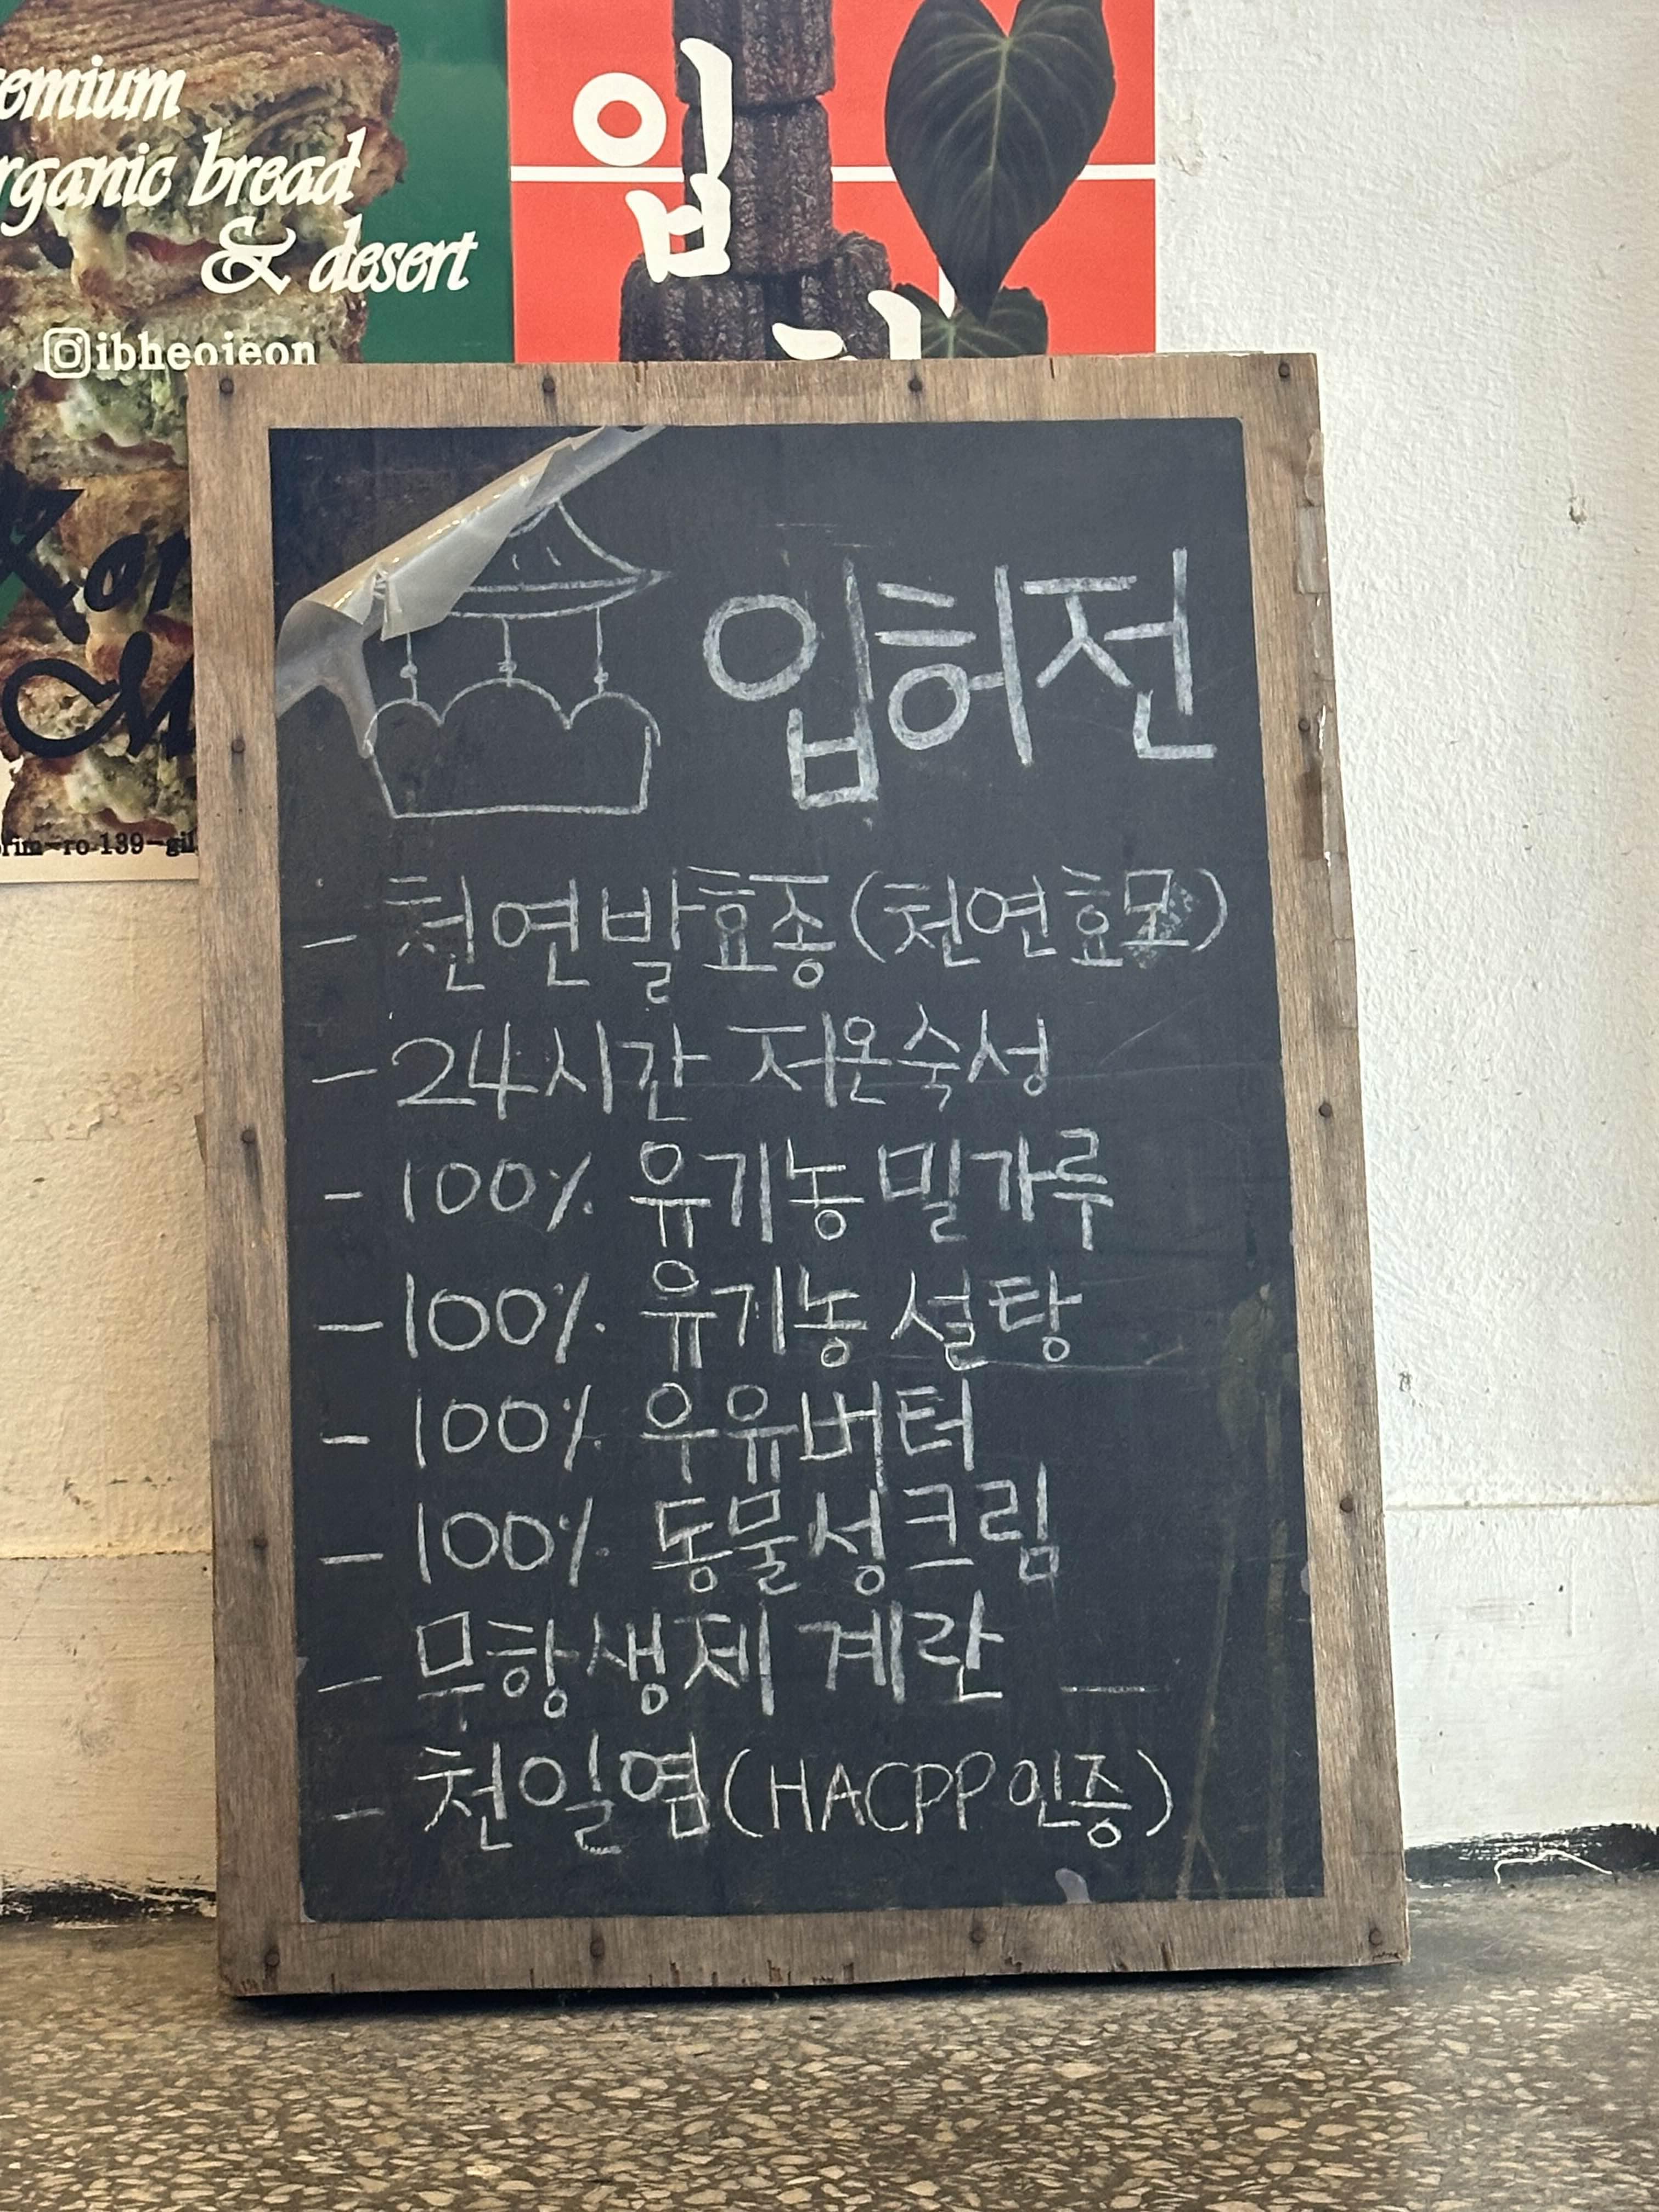 organic bread
& desert
ibheojeon
입
입허전
- 천연발효종(천연효모)
- 24시간 저온숙성
- 100% 유기농 밀가루
- 100% 유기농 설탕
- 100% 우유버터
- 100% 동물성크림
- 무항생제 계란
- 천일염(HACPP인증)